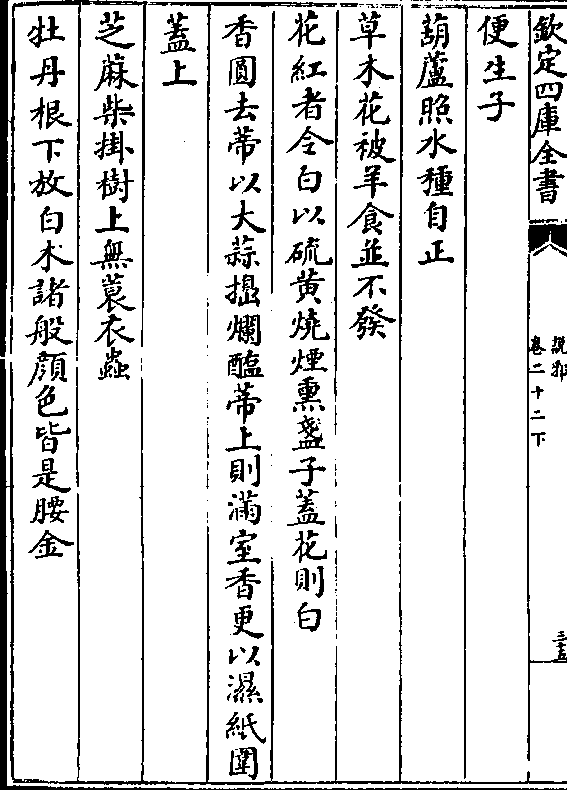 欽定四庫全書
說郛
卷二十二下
三十五
便生子
葫蘆照水種自正
草木花被羊食並不發
花紅者令白以硫黄燒煙熏盞子蓋花則白
香圓去蒂以大蒜擂爛醢蒂上則滿室香更以濕紙圍
蓋上
芝麻柴掛樹上無蓑衣蟲
牡丹根下放白术諸般顔色皆是腰金